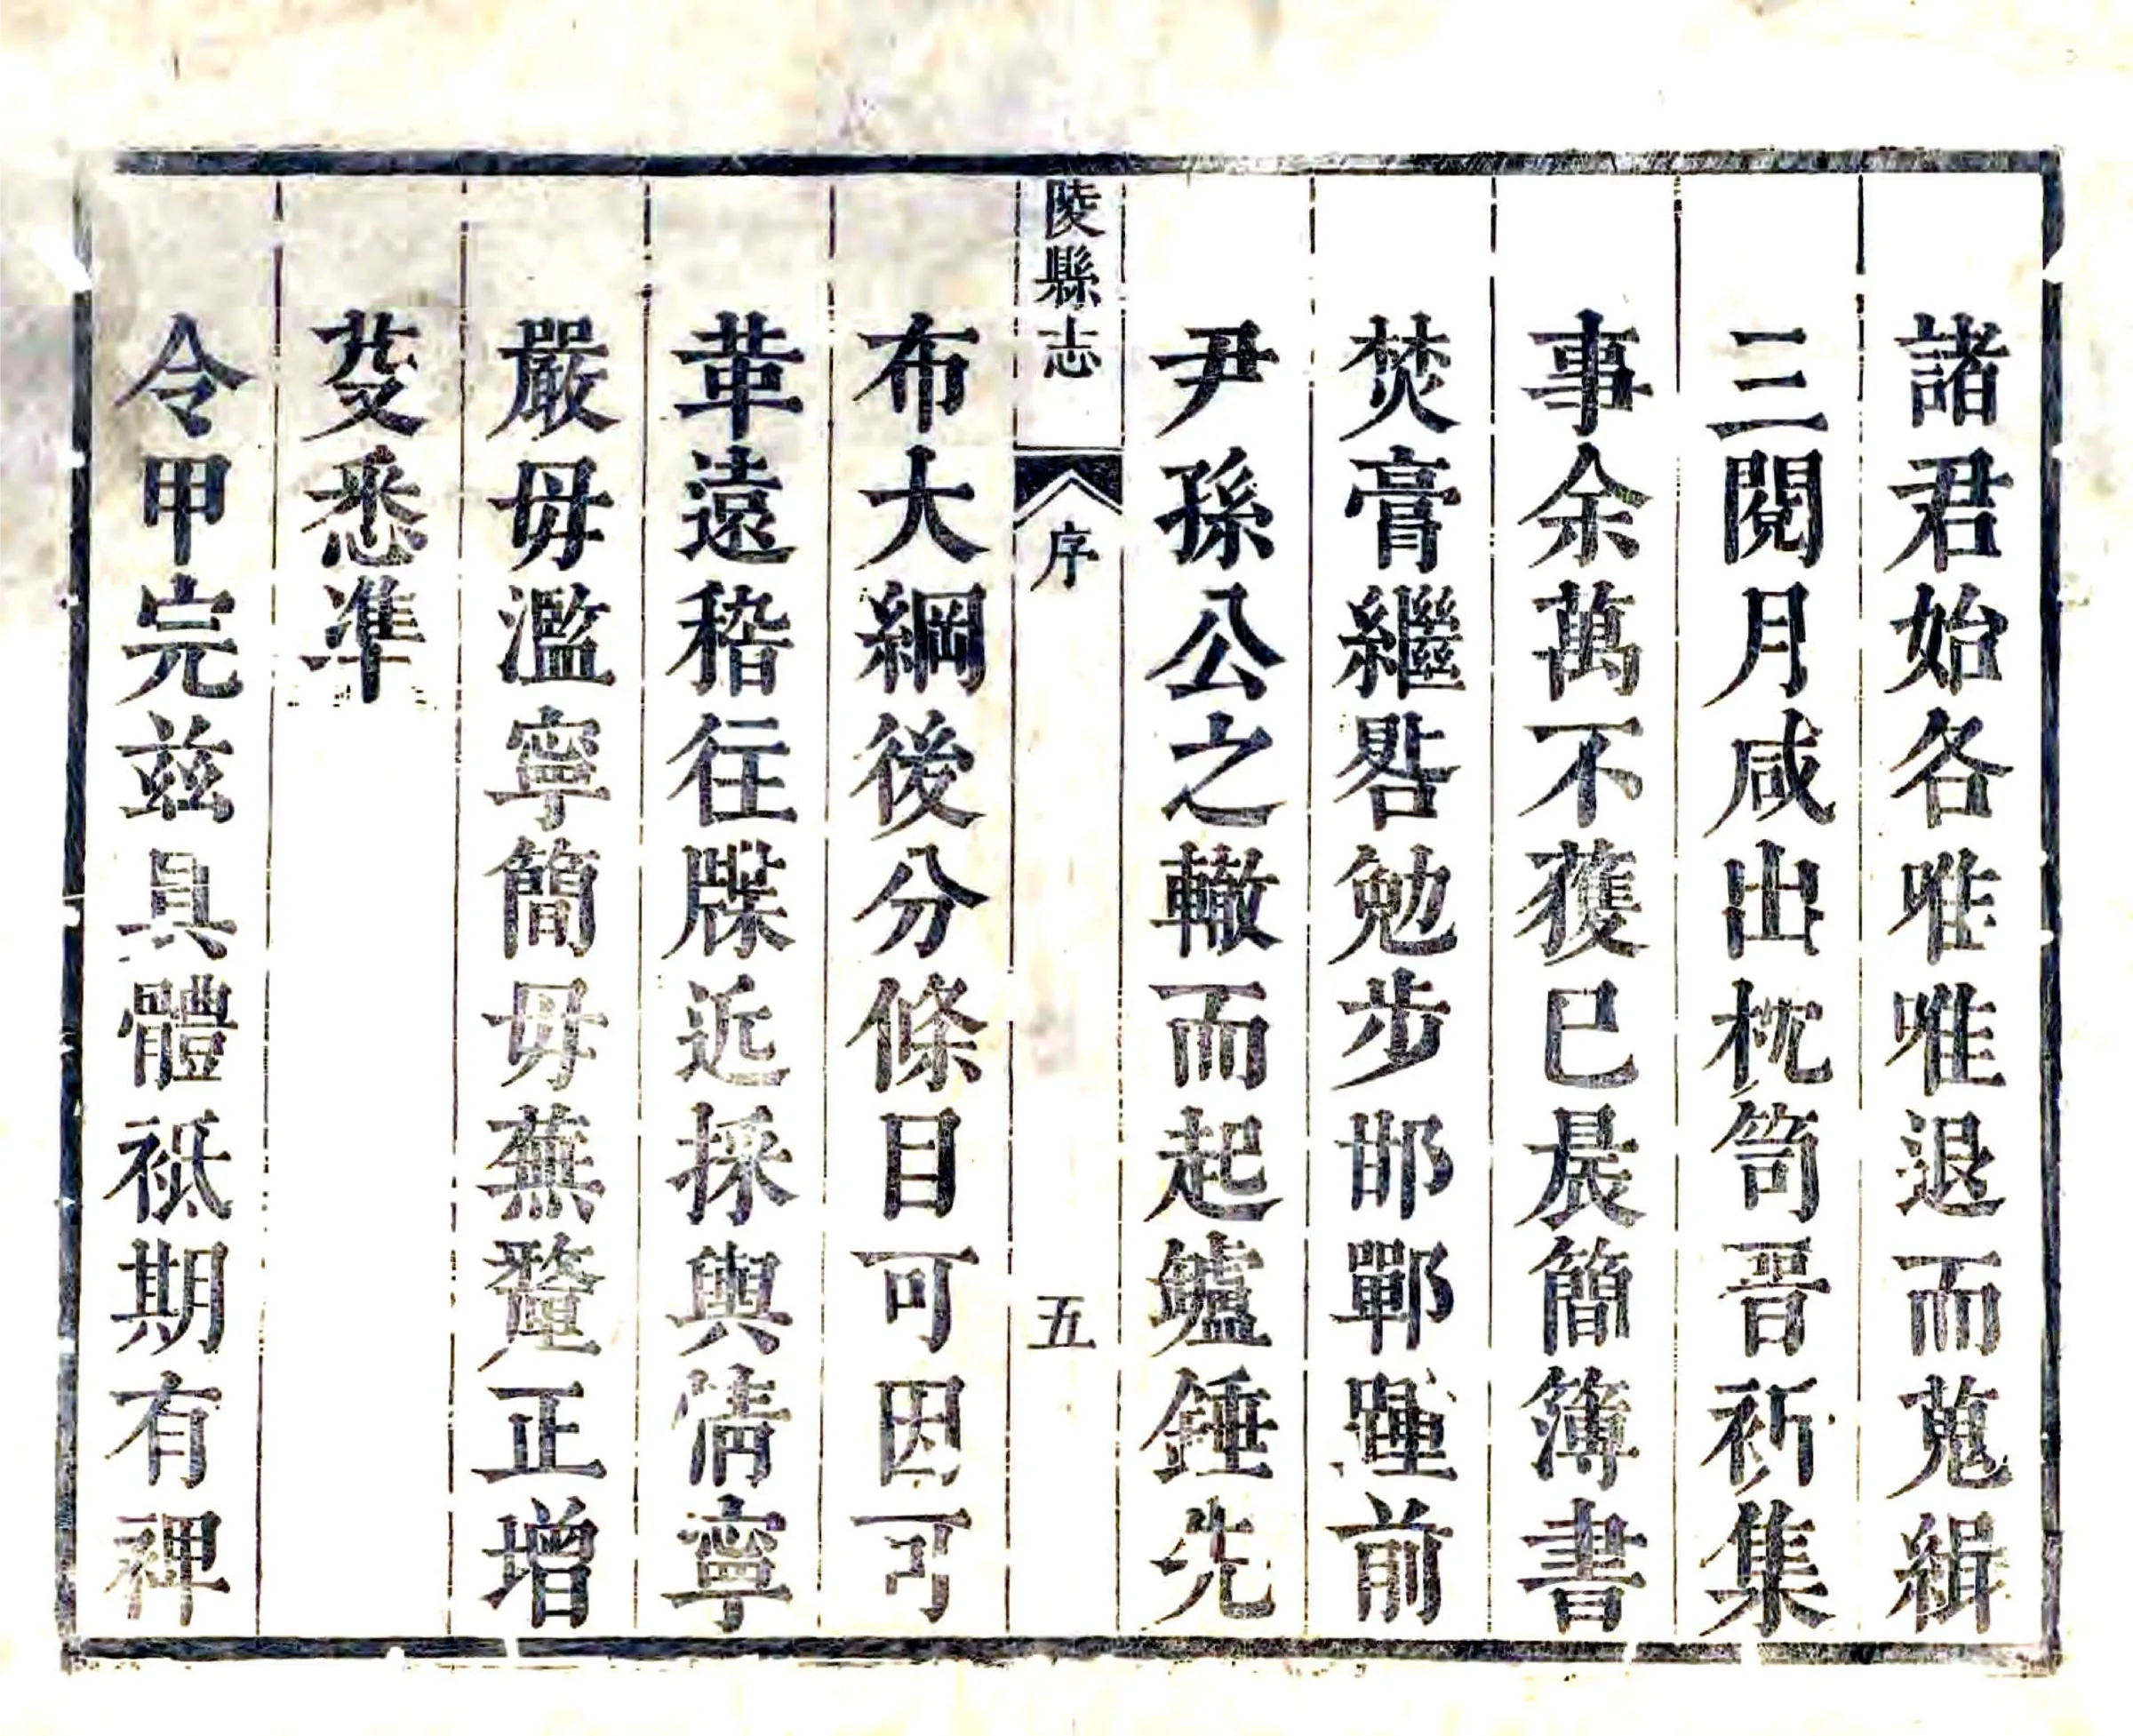 諸君始各唯唯退而蒐緝
三閱月咸出枕笥晉祈集
事余萬不獲已晨簡簿書
焚膏繼晷勉步邯鄲踵前
尹孫公之轍而起鑪錘先
陵縣志
序
五
布大綱後分條目可因可
革遠稽往牒近採輿情寧
嚴毋濫寧簡毋蕪釐正增
芟悉準
令甲完茲具體祗期有裨